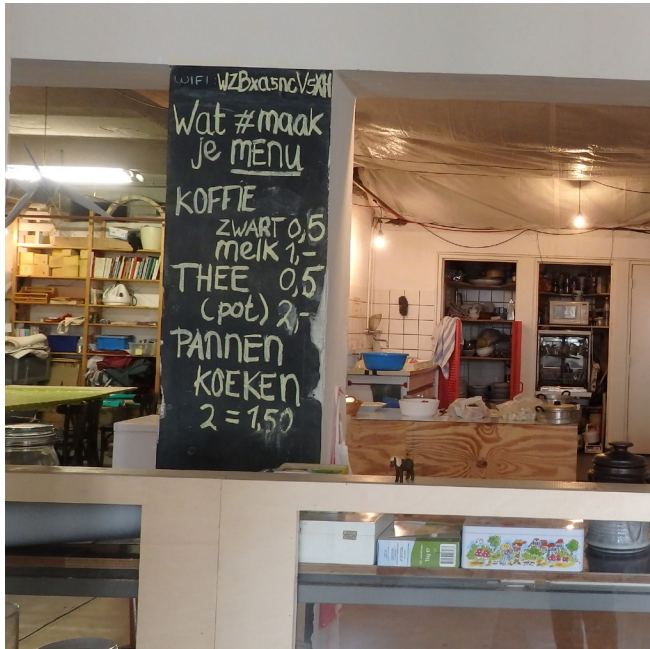 WIFI: WZBxa5ncV5XH
Wat #maak
je MENU
KOFFIE
ZWART 0,5
melk 1,-
THEE 0,5
(pot) 2,-
PANNEN
KOEKEN
2 = 1,50